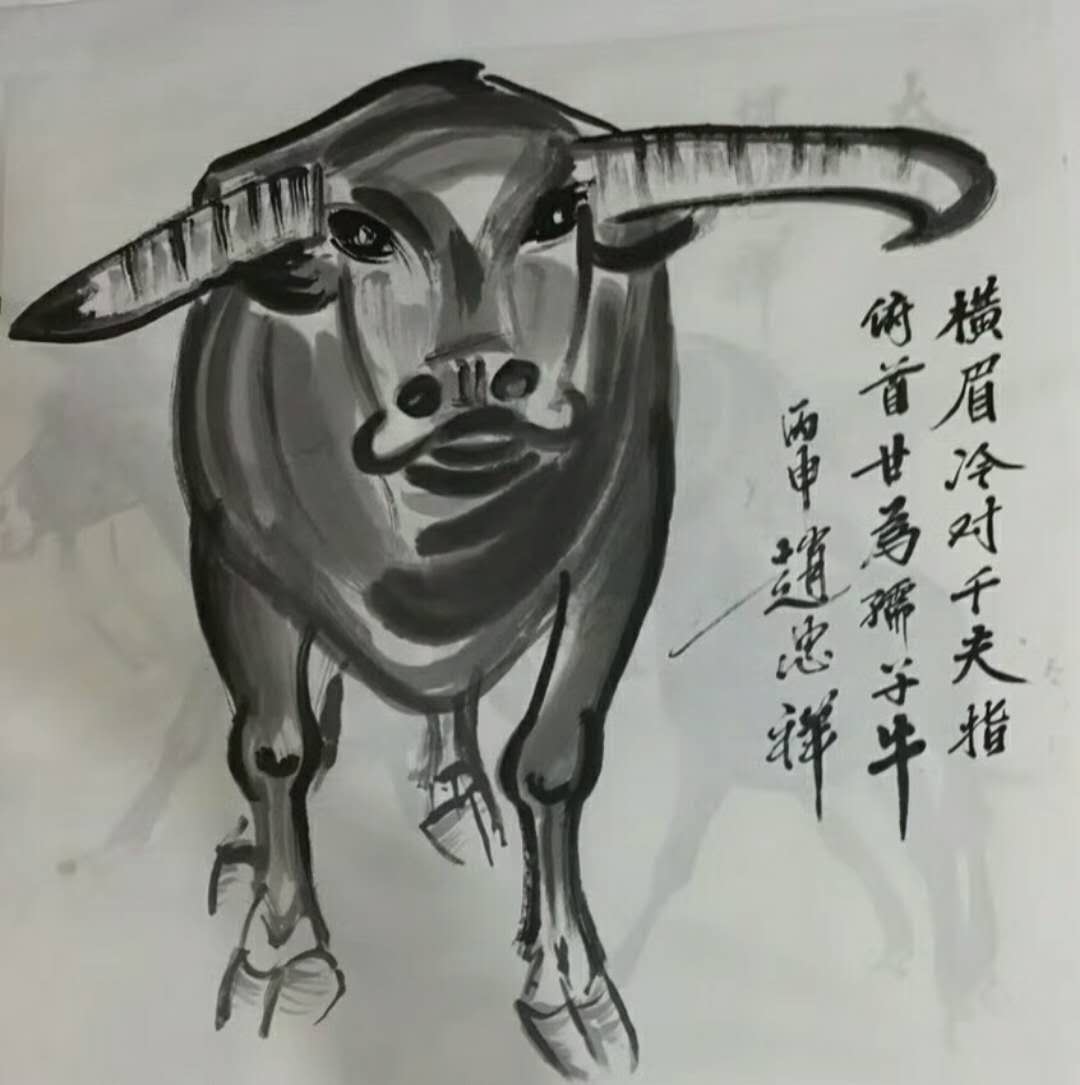 横眉冷对千夫指
俯首甘為孺子牛
丙申
趙忠祥